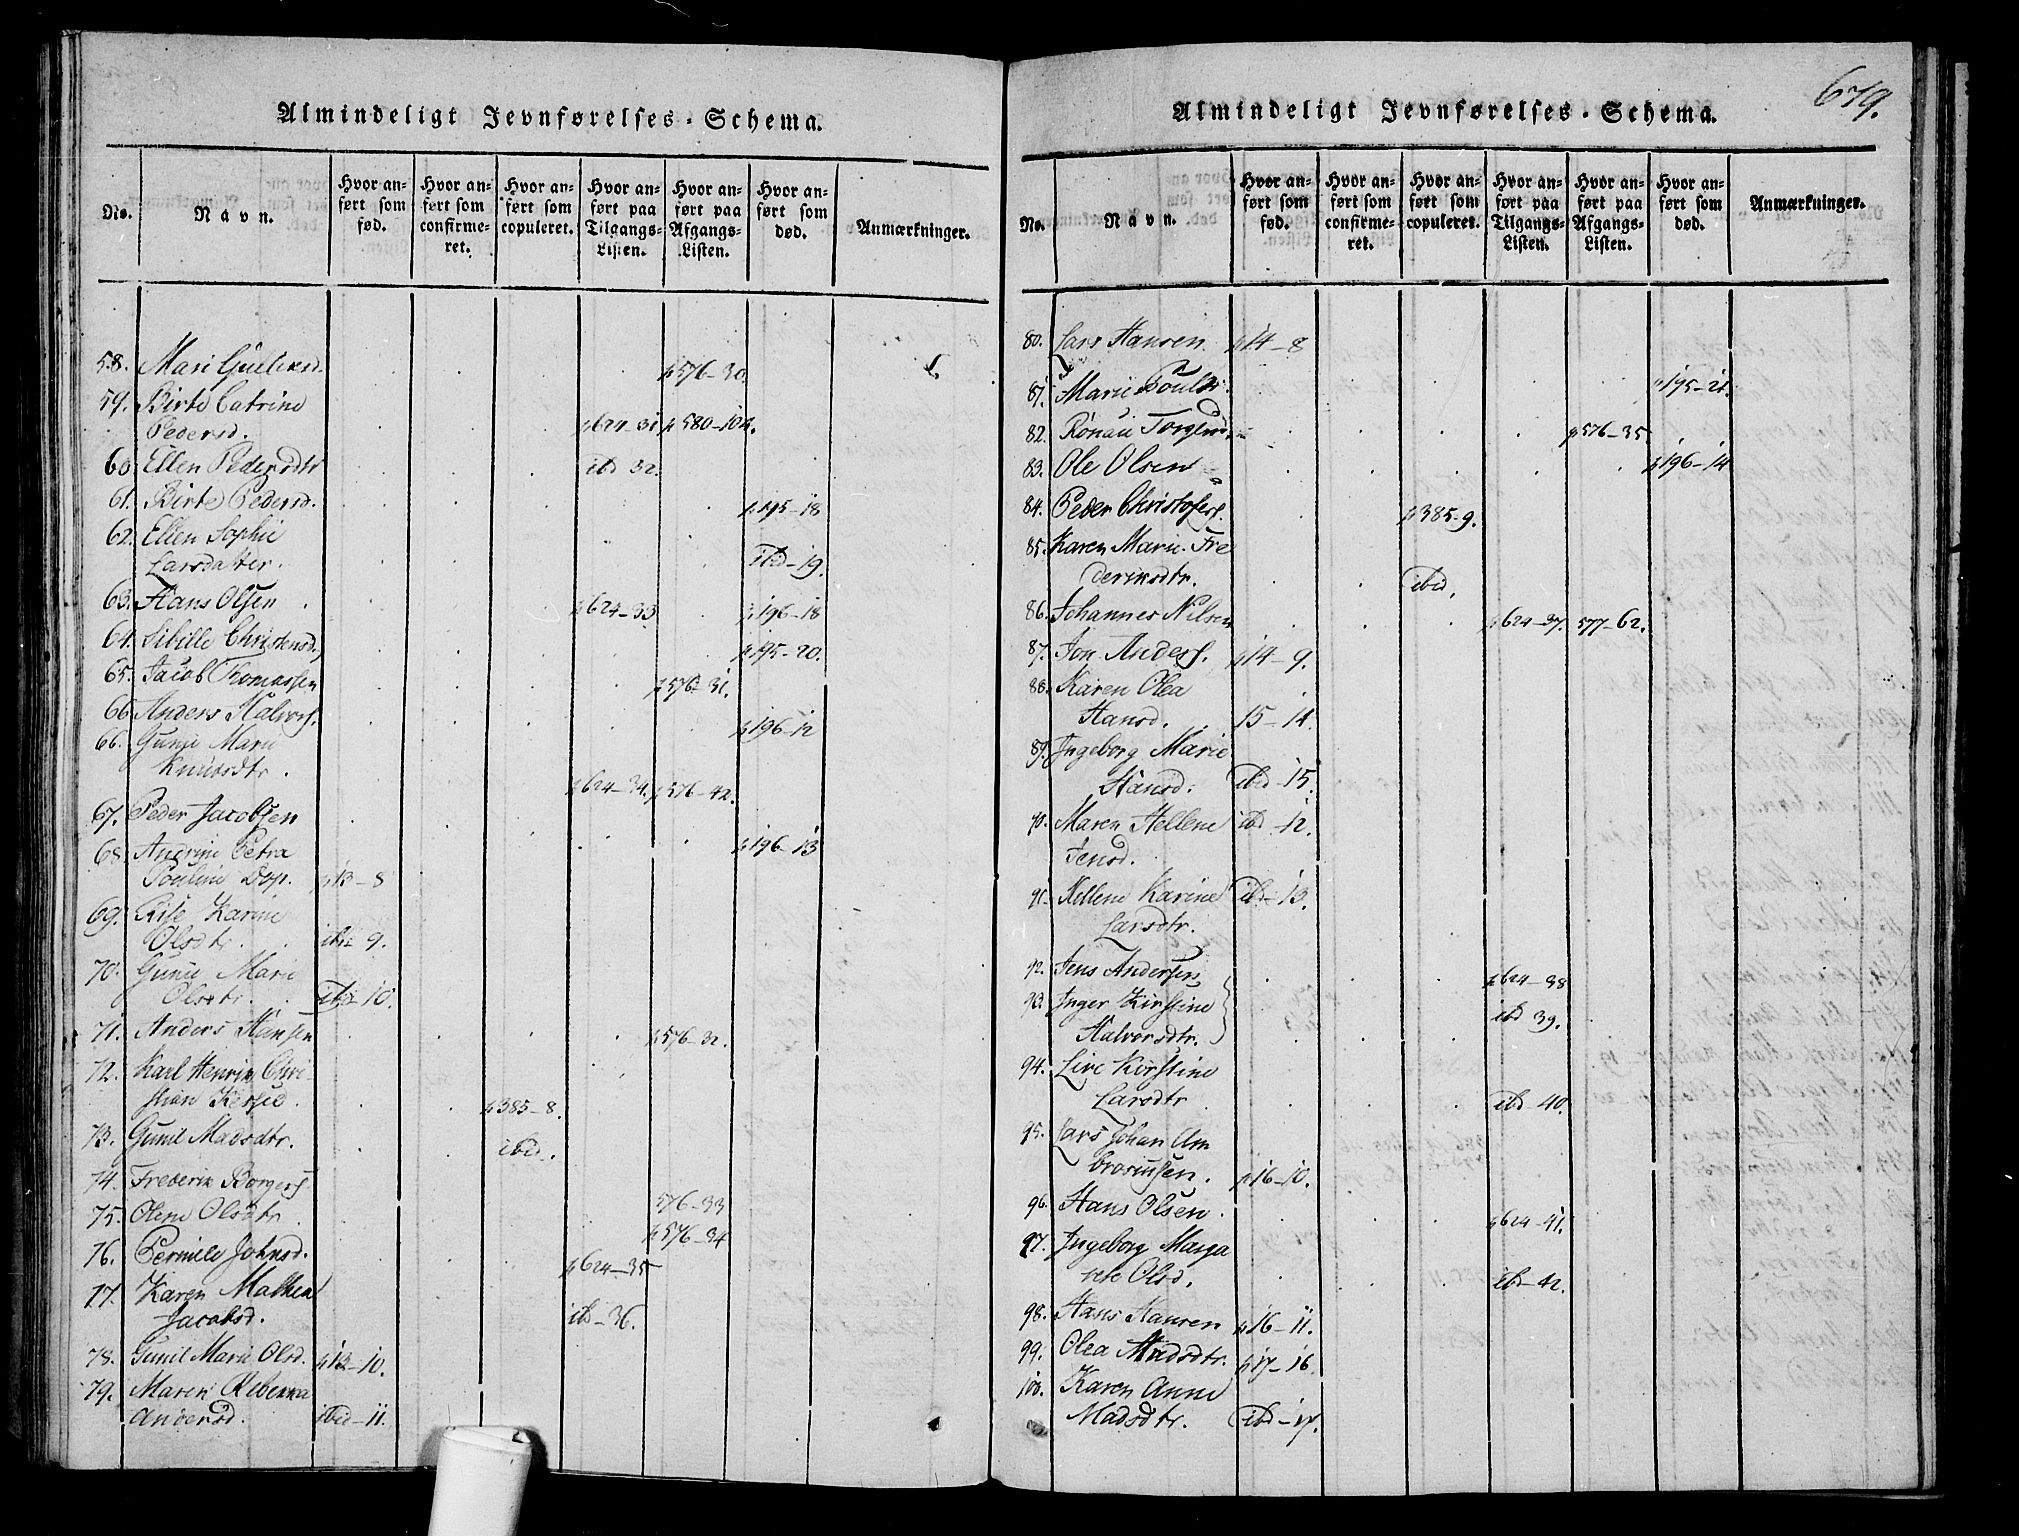 Almindeligt Jevnførelses-Schema.
No.
Navn.
Hvor anført som fød.
Hvor anført som confirmeret.
Hvor anført som copuleret.
Hvor anført paa Tilgangs-Listen.
Hvor anført paa Afgangs-Listen.
Hvor anført som død.
Anmærkninger.
58. Mari Gulliksd. p576-30.
59. Birte Catrine
Pedersd. p624-31 p580-104.
60. Ellen Pedersdtr ibd 32.
61. Birte Pedersd. p195-18
62. Ellen Sophie
Larsdatter. ibid-19.
63. Hans Olsen p624-33 p196-18
64. Sibille Christensd. p195-20.
65. Jacob Thomassen p576-31.
66 Anders Halvors. p196-12
66. Gunil Marie
Knudsdtr. p624-34. p576-42.
67. Peder Jacobsen p196-13
68. Andrine Petra
Pouline Dop. p13-8
69. Else Karine
Olsdtr. ibd 9.
70. Gunil Marie
Olsdtr. ibd 10.
71. Anders Hansen p576-32.
72. Karl Henrik Chri-
stian p385-8.
73. Gunil Madsdtr. ibid.
74. Frederik Borgers. 576-33
75. Oline Olsdtr p576-34
76. Pernile Johnsd. p624-35
77. Karen Mathea
Jacobsd. ibd-36.
78. Gunil Marie Olsd. p13-10.
79. Maren Rebekka
Andersd. ibid-11.
679.
Almindeligt Jevnførelses-Schema.
No.
Navn.
Hvor anført som fød.
Hvor anført som confirmeret.
Hvor anført som copuleret.
Hvor anført paa Tilgangs-Listen.
Hvor anført paa Afgangs-Listen.
Hvor anført som død.
Anmærkninger.
80. Lars Hansen p14-8
81. Marie Pouls. p195-21.
82. Rönau Torgers. p576-35
83. Ole Olsen p196-14
84. Peder Christofers. p385-9.
85. Karen Marie Fre
deriksdtr. ibid.
86. Johannes Nilsen p624-37. 577-62.
87. Jon Anders. p14-9.
88. Karen Olea
Hansd. 15-14.
89. Ingeborg Marie
Hansd. ibd-15.
90. Maren Hellene ibd-12.
Jensd.
91. Hellene Karine ibd-13.
Larsdtr.
92. Jens Andersen p624-38
93. Inger Kirstine ibd 39.
Halvorsdtr.
94. Live Kirstine
Larsdtr ibd 40.
95. Lars Johan Am
brosiussen. p16-10.
96. Hans Olsen. p624-41.
97. Ingeborg Marga
rete Olsd. ibd-42.
98. Hans Hansen p16-11.
99. Olea Madsdtr. p17-16.
100. Karen Anne
Madsdtr. ibd-17.